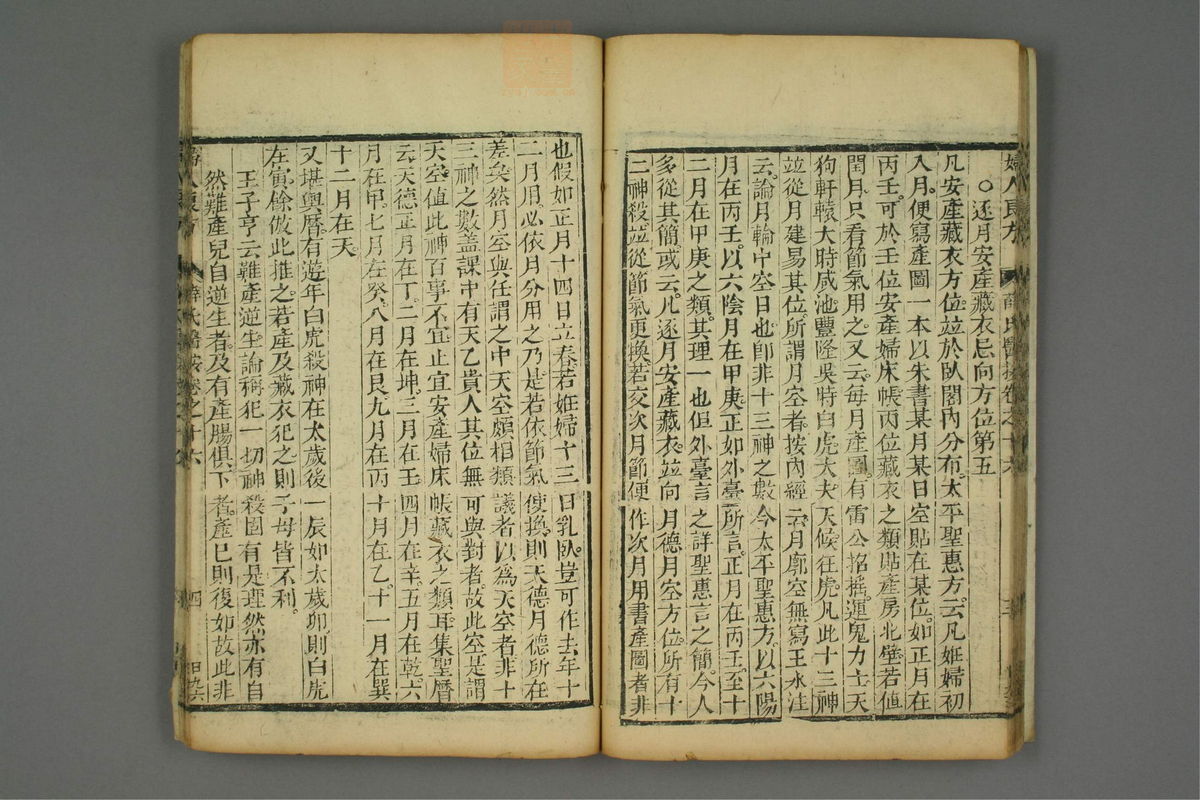 婦人良方　薛氏醫按卷之十六　三
○逐月安產藏衣忌向方位第五
凡安產藏衣方位並於臥閤內分布太平聖惠方云凡姙婦初
入月便寫產圖一本以朱書某月某日空貼在某位如正月在
丙壬可於壬位安產婦床帳丙位藏衣之類貼產房北壁若值
閏月只看節氣用之又云每月產圖有雷公招搖運鬼力士天
狗軒轅大時咸池豐隆吳時白虎大夫天候狂虎凡此十三神
並從月建易其位所謂月空者按內經云月廓空無寫王氷注
云論月輪中空日也卽非十三神之數今太平聖惠方以六陽
月在丙壬以六陰月在甲庚正如外臺所言正月在丙壬至十
二月在甲庚之類其理一也但外臺言之詳聖惠言之簡今人
多從其簡或云凡逐月安產藏衣並向月德月空方位所有十
二神殺並從節氣更換若交次月節便作次月用書產圖者非
也假如正月十四日立春若姙婦十三日乳臥豈可作去年十
二月用必依月分用之乃是若依節氣使換則天德月德所在
差矣然月空與任謂之中天空頗相類議者以為天空者非十
三神之數蓋課中有天乙貴人其位無可與對者故此空是謂
天空值此神百事不宜止宜安產婦床帳藏衣之類耳集聖曆
云天德正月在丁二月在坤三月在壬四月在辛五月在乾六
月在甲七月在癸八月在艮九月在丙十月在乙十一月在巽
十二月在天
又堪輿曆有遊年白虎殺神在太歲後一辰如太歲卯則白虎
在寅餘倣此推之若產及藏衣犯之則子母皆不利
王子亨云難產逆生論稱犯一切神殺固有是理然亦有自
然難產兒自逆生者及有產腸俱下者產已則復如故此非
薛氏醫按卷之十六　四